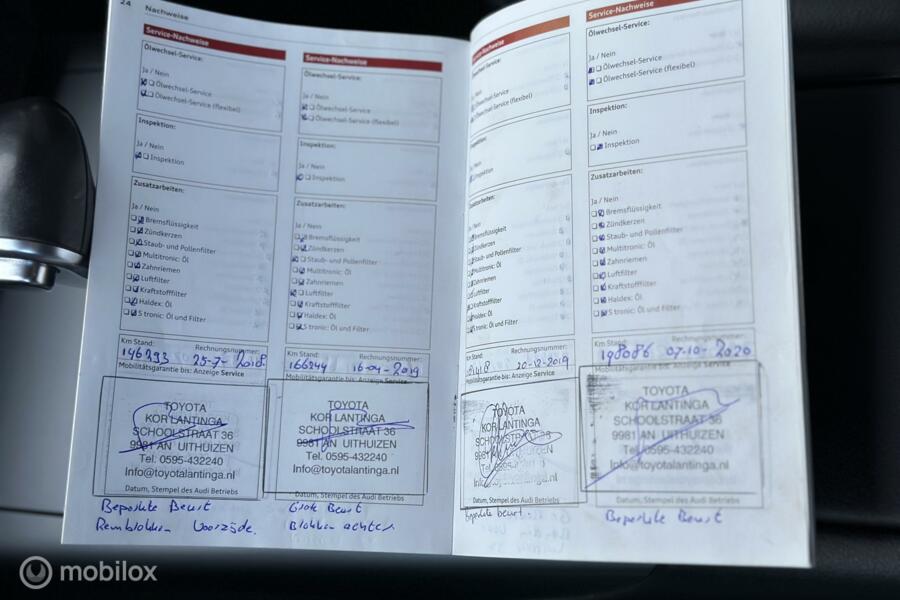 24 Nachweise
Service-Nachweise
Ölwechsel-Service:
Ja / Nein
Ölwechsel-Service
Ölwechsel-Service (flexibel)
Inspektion:
Ja / Nein
Inspektion
Zusatzarbeiten:
Ja / Nein
Bremsflüssigkeit
Zündkerzen
Staub- und Pollenfilter
Multitronic: Öl
Zahnriemen
Luftfilter
Kraftstofffilter
Haldex: Öl
S tronic: Öl und Filter
Km Stand: Rechnungsnummer:
146233 25-7-2018
Mobilitätsgarantie bis: Anzeige Service
TOYOTA
KOR LANTINGA
SCHOOLSTRAAT 36
9981 AN UITHUIZEN
Tel. 0595-432240
Info@toyotalantinga.nl
Datum, Stempel des Audi Betriebs
Beperkte Beurt
Remblokken Voorzijde.
Service-Nachweise
Ölwechsel-Service:
Ja / Nein
Ölwechsel-Service
Ölwechsel-Service (flexibel)
Inspektion:
Ja / Nein
Inspektion
Zusatzarbeiten:
Ja / Nein
Bremsflüssigkeit
Zündkerzen
Staub- und Pollenfilter
Multitronic: Öl
Zahnriemen
Luftfilter
Kraftstofffilter
Haldex: Öl
S tronic: Öl und Filter
Km Stand: Rechnungsnummer:
166244 16-04-2019
Mobilitätsgarantie bis: Anzeige Service
TOYOTA
KOR LANTINGA
SCHOOLSTRAAT 36
9981 AN UITHUIZEN
Tel. 0595-432240
Info@toyotalantinga.nl
Datum, Stempel des Audi Betriebs
Grote Beurt
Blokken achter
Service-Nachweise
Ölwechsel-Service:
Ja / Nein
Ölwechsel-Service
Ölwechsel-Service (flexibel)
Inspektion:
Ja / Nein
Inspektion
Zusatzarbeiten:
Ja / Nein
Bremsflüssigkeit
Zündkerzen
Staub- und Pollenfilter
Multitronic: Öl
Zahnriemen
Luftfilter
Kraftstofffilter
Haldex: Öl
S tronic: Öl und Filter
Km Stand: Rechnungsnummer:
20-12-2019
Mobilitätsgarantie bis: Anzeige Service
TOYOTA
KOR LANTINGA
SCHOOLSTRAAT 36
Tel. 0595-432240
Info@toyotalantinga.nl
Datum, Stempel des Audi Betriebs
Beperkte beurt.
Service-Nachweise
Ölwechsel-Service:
Ja / Nein
Ölwechsel-Service
Ölwechsel-Service (flexibel)
Inspektion:
Ja / Nein
Inspektion
Zusatzarbeiten:
Ja / Nein
Bremsflüssigkeit
Zündkerzen
Staub- und Pollenfilter
Multitronic: Öl
Zahnriemen
Luftfilter
Kraftstofffilter
Haldex: Öl
S tronic: Öl und Filter
Km Stand: Rechnungsnummer:
198086 07-10-2020
Mobilitätsgarantie bis: Anzeige Service
TOYOTA
KOR LANTINGA
SCHOOLSTRAAT 36
9981 AN UITHUIZEN
Tel. 0595-432240
Info@toyotalantinga.nl
Datum, Stempel des Audi Betriebs
Beperkte Beurt
mobilox